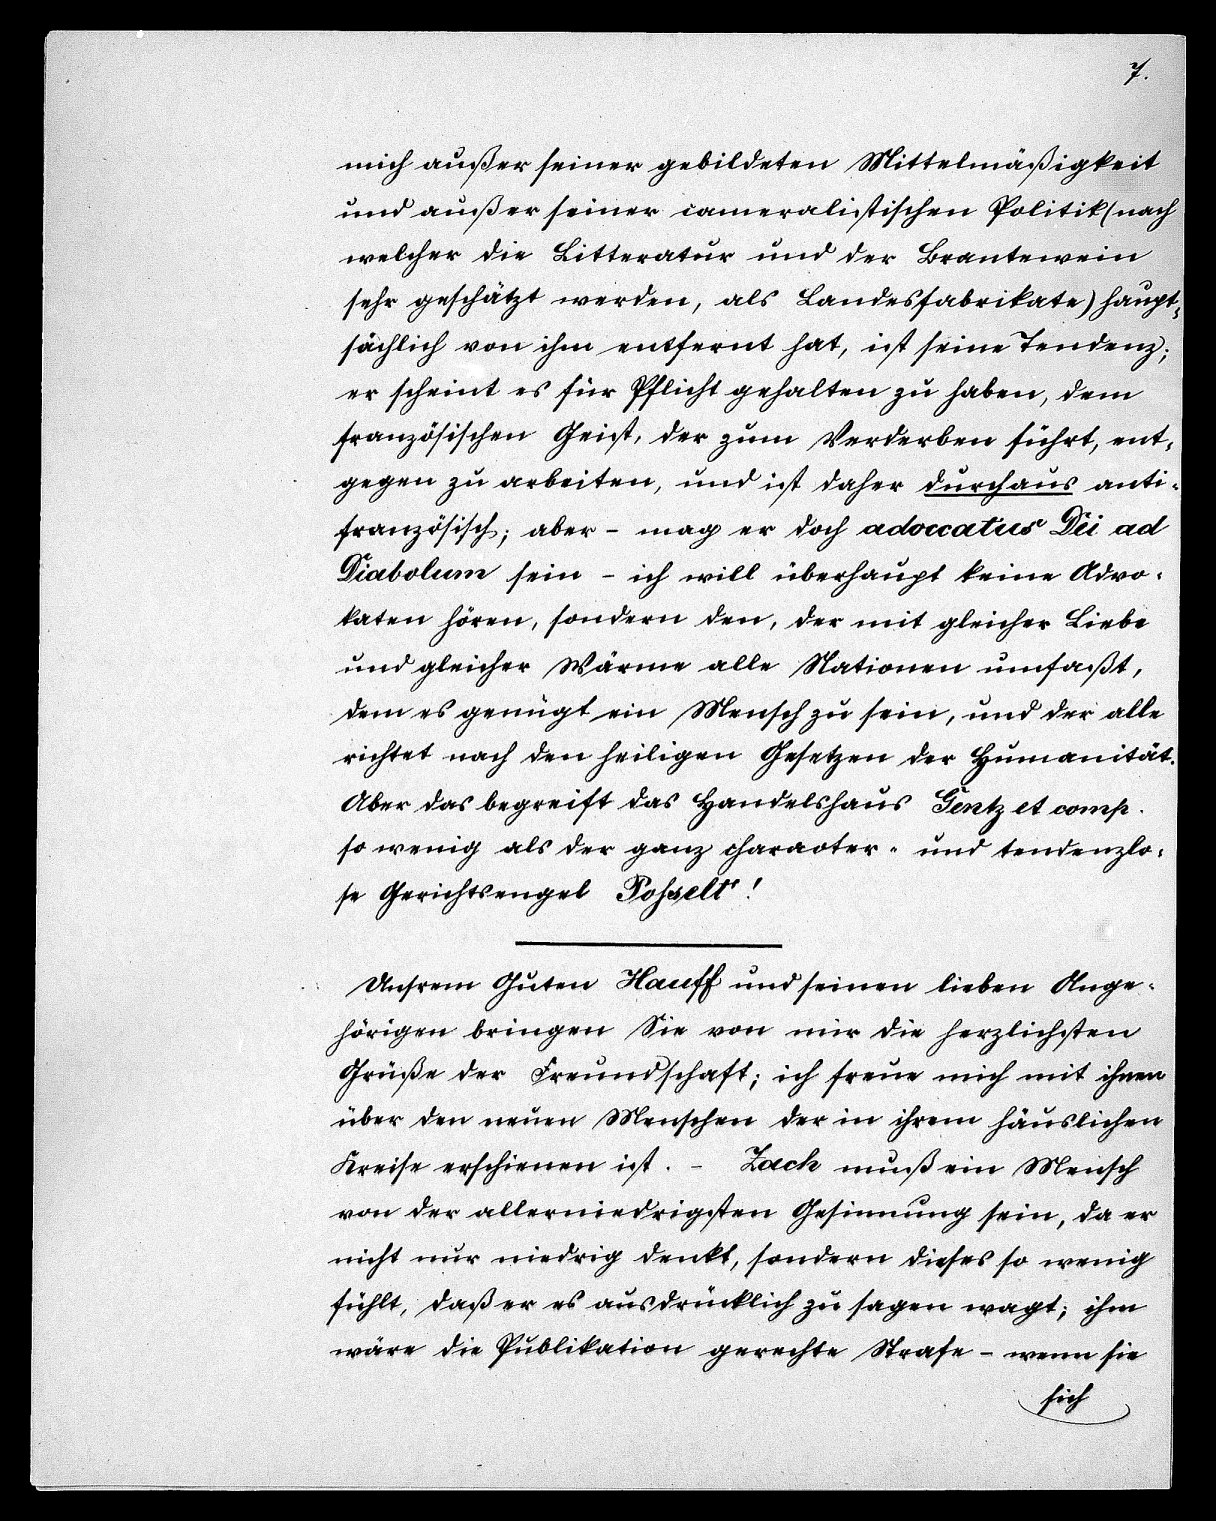 7.
mich außer seiner gebildeten Mittelmäßigkeit
und außer seiner cameralistischen Politik (nach
welcher die Litteratur und der Brantewein
sehr geschätzt werden, als Landesfabrikate) haupt-
sächlich von ihm entfernt hat, ist seine Tendenz;
er scheint es für Pflicht gehalten zu haben, dem
französischen Geist, der zum Verderben führt, ent-
gegen zu arbeiten, und ist daher durchaus anti-
französisch; aber - mag er doch adoccatus Dei ad
Diabolum sein - ich will überhaupt keine Advo-
katen hören, sondern den, der mit gleicher Liebe
und gleicher Wärme alle Nationen umfaßt,
dem es genügt ein Mensch zu sein, und der alle
richtet nach den heiligen Gesetzen der Humanität.
Aber das begreift das Handelshaus Gentz et comp.
so wenig als der ganz character- und tendenzlo-
se Gerichtsengel Posselt!
Unsrem Guten Hauff und seinen lieben Ange-
hörigen bringen Sie von mir die herzlichsten
Grüße der Freundschaft; ich freue mich mit ihnen
über den neuen Menschen der in ihrem häuslichen
Kreise erschienen ist. - Zach muß ein Mensch
von der allerniedrigsten Gesinnung sein, da er
nicht nur niedrig denkt, sondern dieses so wenig
fühlt, daß er es ausdrücklich zu sagen wagt; ihm
wäre die Publikation gerechte Strafe - wenn sie
sich